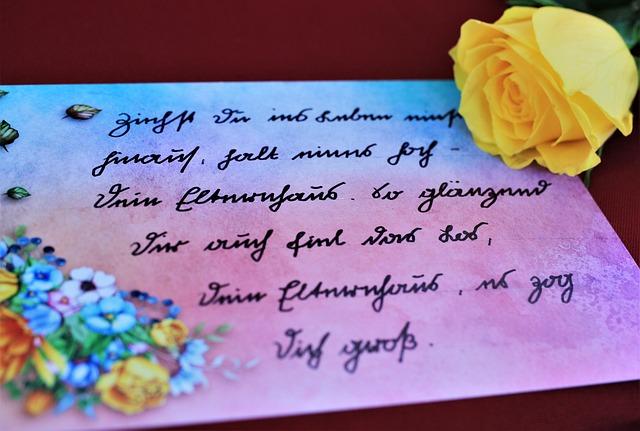 Ziehst Du ins Leben einst
hinaus, halt immer hoch -
Dein Elternhaus. So glänzend
Dir auch fiel das Los,
Dein Elternhaus, es zog
Dich groß.